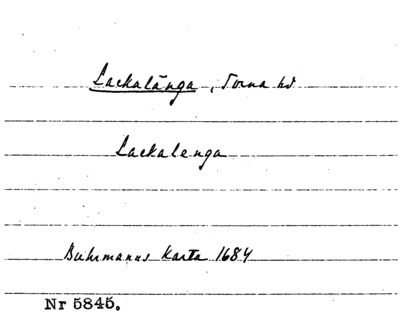 Lackalänga, Torna hd
Lackalenga
Buhrmanns Karta 1684
Nr 5845.